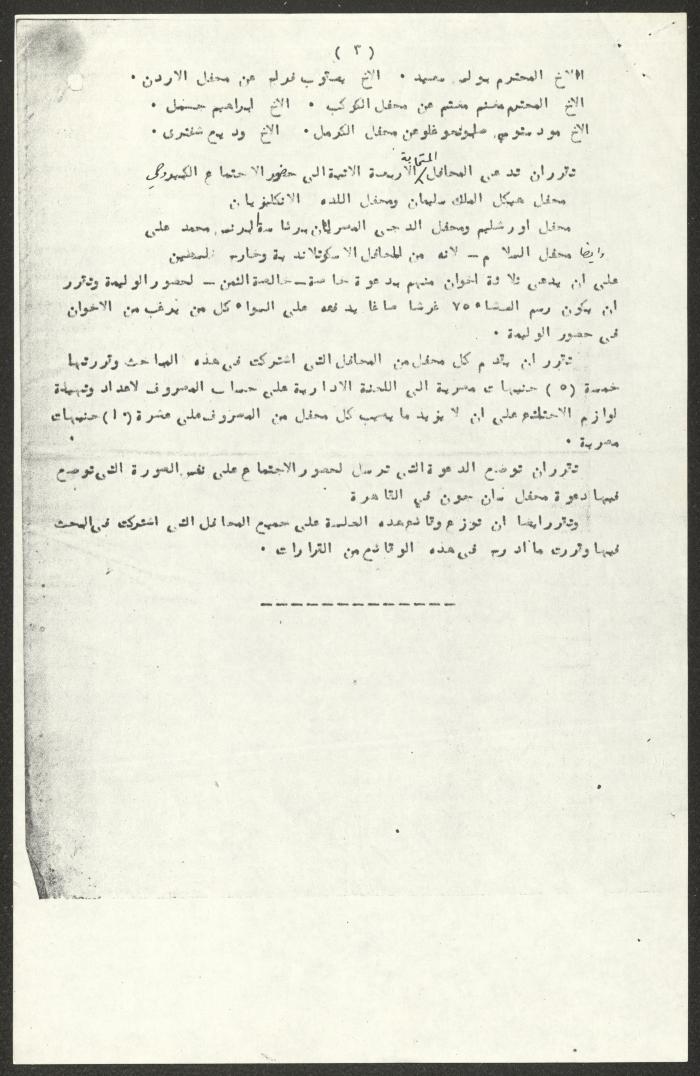 ( ٣ )
الاخ المحترم بولس سعيد ٠ الاخ يعقوب فرلم عن محفل الاردن ٠
الاخ المحترم مغنم مغنم عن محفل الكوكب ٠ الاخ ابراهيم ٠
الاخ عن محفل الكرمل ٠ الاخ وديع شفترى ٠
تقرر ان تدعى المحافل المتحابة الاربعة الاتية الى حضور الاجتماع
محفل هيكل الملك سليمان ومحفل اللده الانكليزيان
محفل اورشليم ومحفل الدجى المصريان برئاسة البرنس محمد على
وايضا محفل السلام – لانه من المحافل الاسكوتلاندية وخارج فلسطين
على ان يدعى ثلاثة اخوان منهم بدعوة خاصة – خالصة الثمن – لحضور الوليمة وتقرر
ان يكون رسم العشاء ٧٥ غرشا صاغا يدفعه على السواء كل من يرغب من الاخوان
فى حضور الوليمة ٠
تقرر ان يقدم كل محفل من المحافل التى اشتركت فى هذه المباحث وقررتها
خمسة (٥) جنيهات مصرية الى اللجنة الادارية على حساب المصروف لاعداد وتهيئة
لوازم الاحتفال على ان لا يزيد ما يصيب كل محفل من المصروف على عشرة (١٠) جنيهات
مصرية ٠
تقرر ان توضع الدعوة التى ترسل لحضور الاجتماع على نفس الصورة التى توضع
فيها دعوة محفل سان جون في القاهرة
وتقرر ايضا ان توزع وقائع هذه الجلسة على جميع المحافل التى اشتركت فى البحث
فيها وقررت ما ادرج فى هذه الوقائع من القرارات ٠